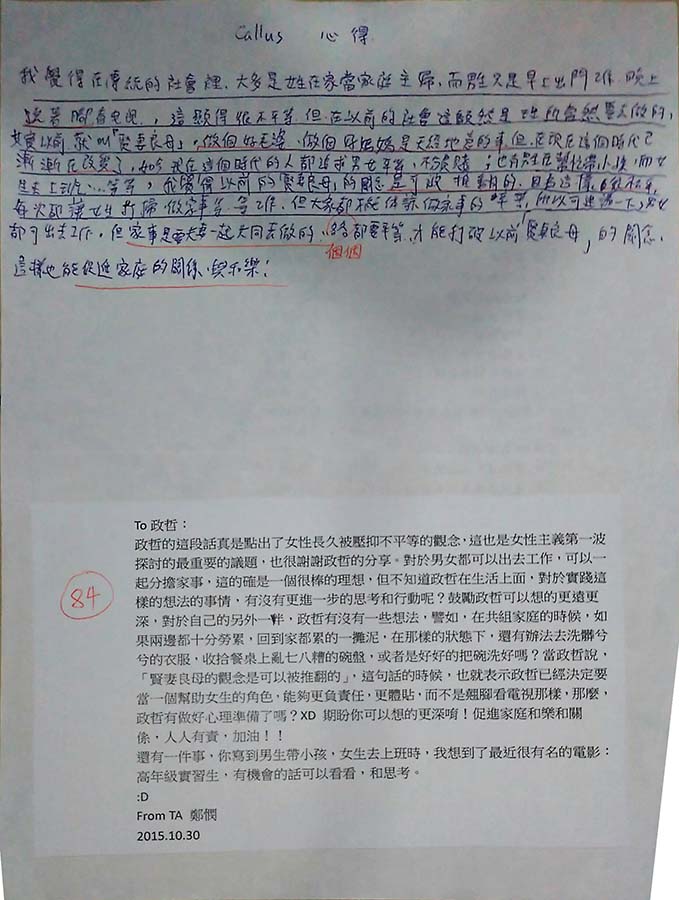 Callus 心得
我覺得在傳統的社會裡,大多是女性在家當家庭主婦,而男生只是早上出門工作,晚上
翹著腳看電視,這顯得很不平等.但在以前的社會這般然是理所當然要去做的,
其實以前就叫「賢妻良母」,做個好老婆,做個好媽媽是天經地義的事.但,在現在這個時代已
漸漸在改變了,如今現在這個時代的人都追求男女平等,不分貴賤;也有男生在幫忙帶小孩,而女
生去上班…等等,我覺得以前的賢妻良母的觀念是可被推翻的.因為這樣
每次都讓女生打掃做家事等等工作.但大家都不能體諒做家事的辛苦,所以可
都可出去工作,但家事是要夫妻一起共同去做的.各各都要平等,才能打破以前「賢妻良母」的觀念.
個個
這樣也能促進家庭的關係與和樂!
84
To 政哲:
政哲的這段話真是點出了女性長久被壓抑不平等的觀念,這也是女性主義第一波
探討的最重要的議題,也很謝謝政哲的分享。對於男女都可以出去工作,可以一
起分擔家事,這的確是一個很棒的理想,但不知道政哲在生活上面,對於實踐這
樣的想法的事情,有沒有更進一步的思考和行動呢?鼓勵政哲可以想的更遠更
深,對於自己的另外一半,政哲有沒有一些想法,譬如,在共組家庭的時候,如
果兩邊都十分勞累,回到家都累的一攤泥,在那樣的狀態下,還有辦法去洗髒兮
兮的衣服,收拾餐桌上亂七八糟的碗盤,或者是好好的把碗洗好嗎?當政哲說,
「賢妻良母的觀念是可以被推翻的」,這句話的時候,也就表示政哲已經決定要
當一個幫助女生的角色,能夠更負責任,更體貼,而不是翹腳看電視那樣,那麼,
政哲有做好心理準備了嗎?XD 期盼你可以想的更深唷!促進家庭和樂和關
係,人人有責,加油!!
還有一件事,你寫到男生帶小孩,女生去上班時,我想到了最近很有名的電影:
高年級實習生,有機會的話可以看看,和思考。
:D
From TA 鄭憫
2015.10.30